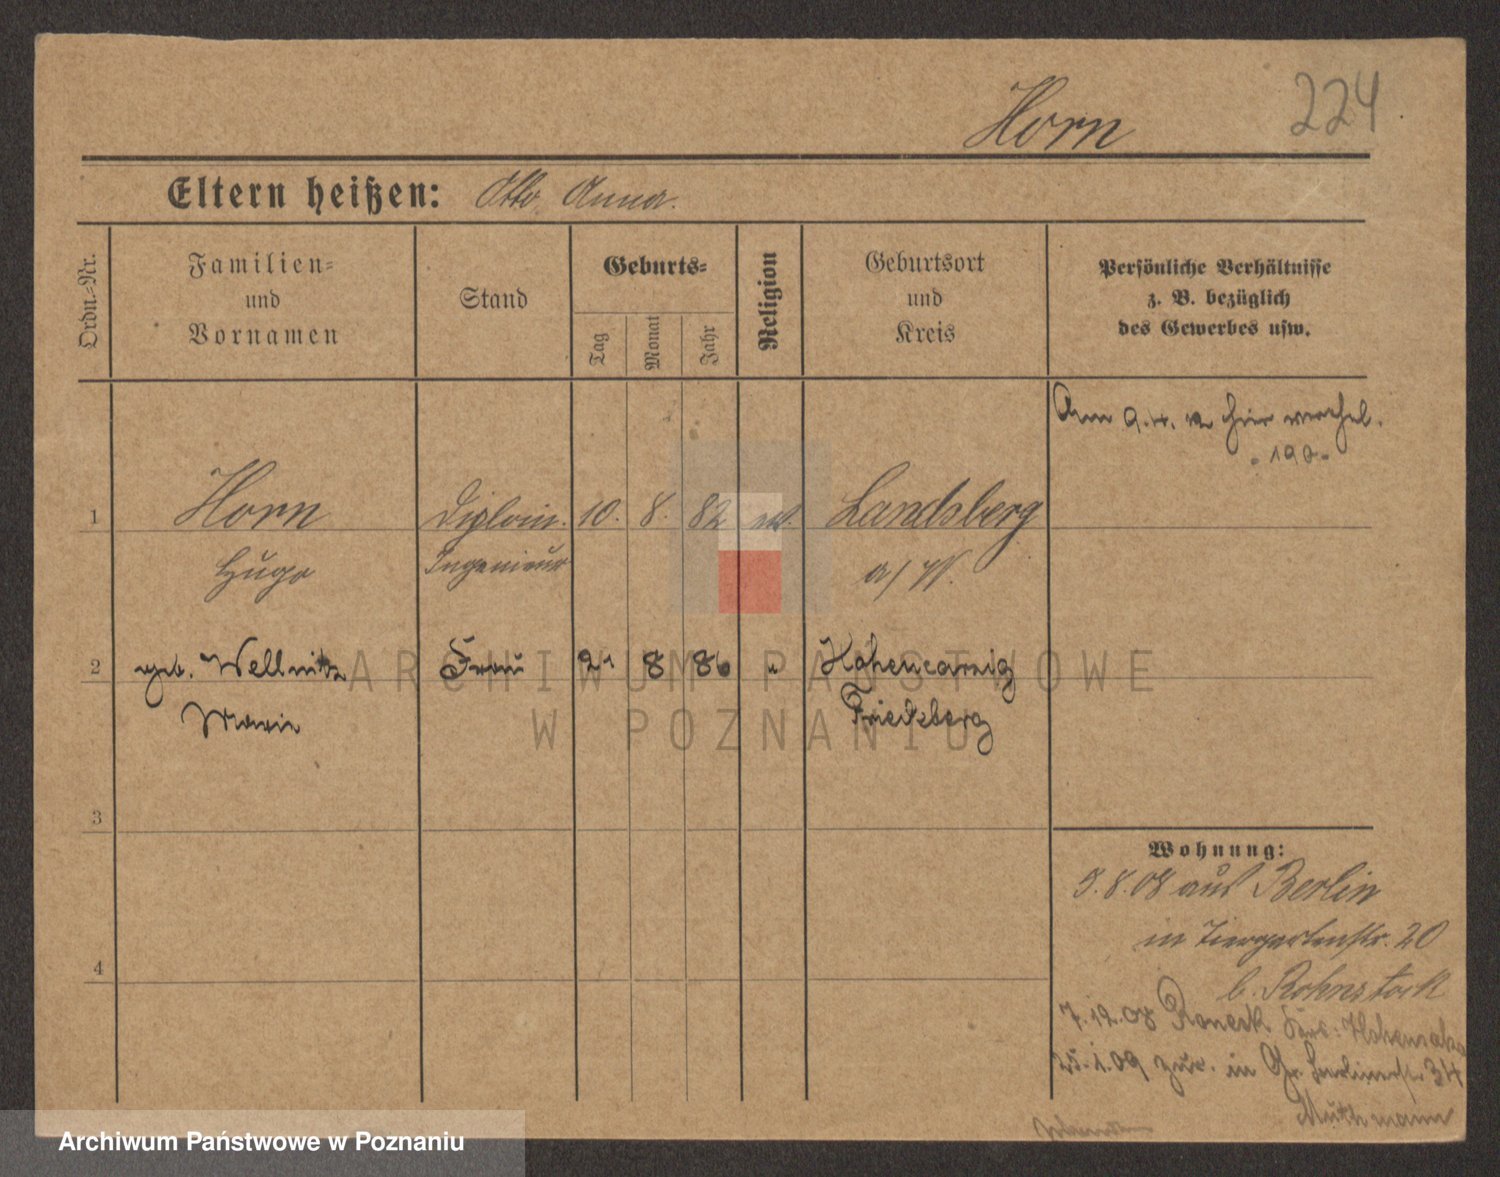 Horn 224
Eltern heißen: Otto Anna.
Ordn.-Nr.
Familien-
und
Vornamen
Stand
Geburts-
Tag
Monat
Jahr
Religion
Geburtsort
und
Kreis
Persönliche Verhältnisse
z. B. bezüglich
des Gewerbes usw.
Am 9.4. hier verehel.
1 Horn Diplom. 10. 8. 82 ev. Landsberg
Hugo Ingenieur a/W.
2 geb. Wellnitz Frau 21 8 86 " Hohencarzig
Marie Friedeberg
ARCHIWUM PAŃSTWOWE
W POZNANIU
3
4
Wohnung:
5.8.08 aus Berlin
in Tiergartenstr. 20
b. Rohnstock
7.12.08
25.1.09 zur. in Gr. Berlinerstr. 34
Muthmann
Archiwum Państwowe w Poznaniu